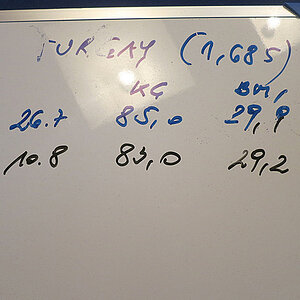 TURGAY (1,685)
KG BMI
26.7 85,0 29,9
10.8 83,0 29,2